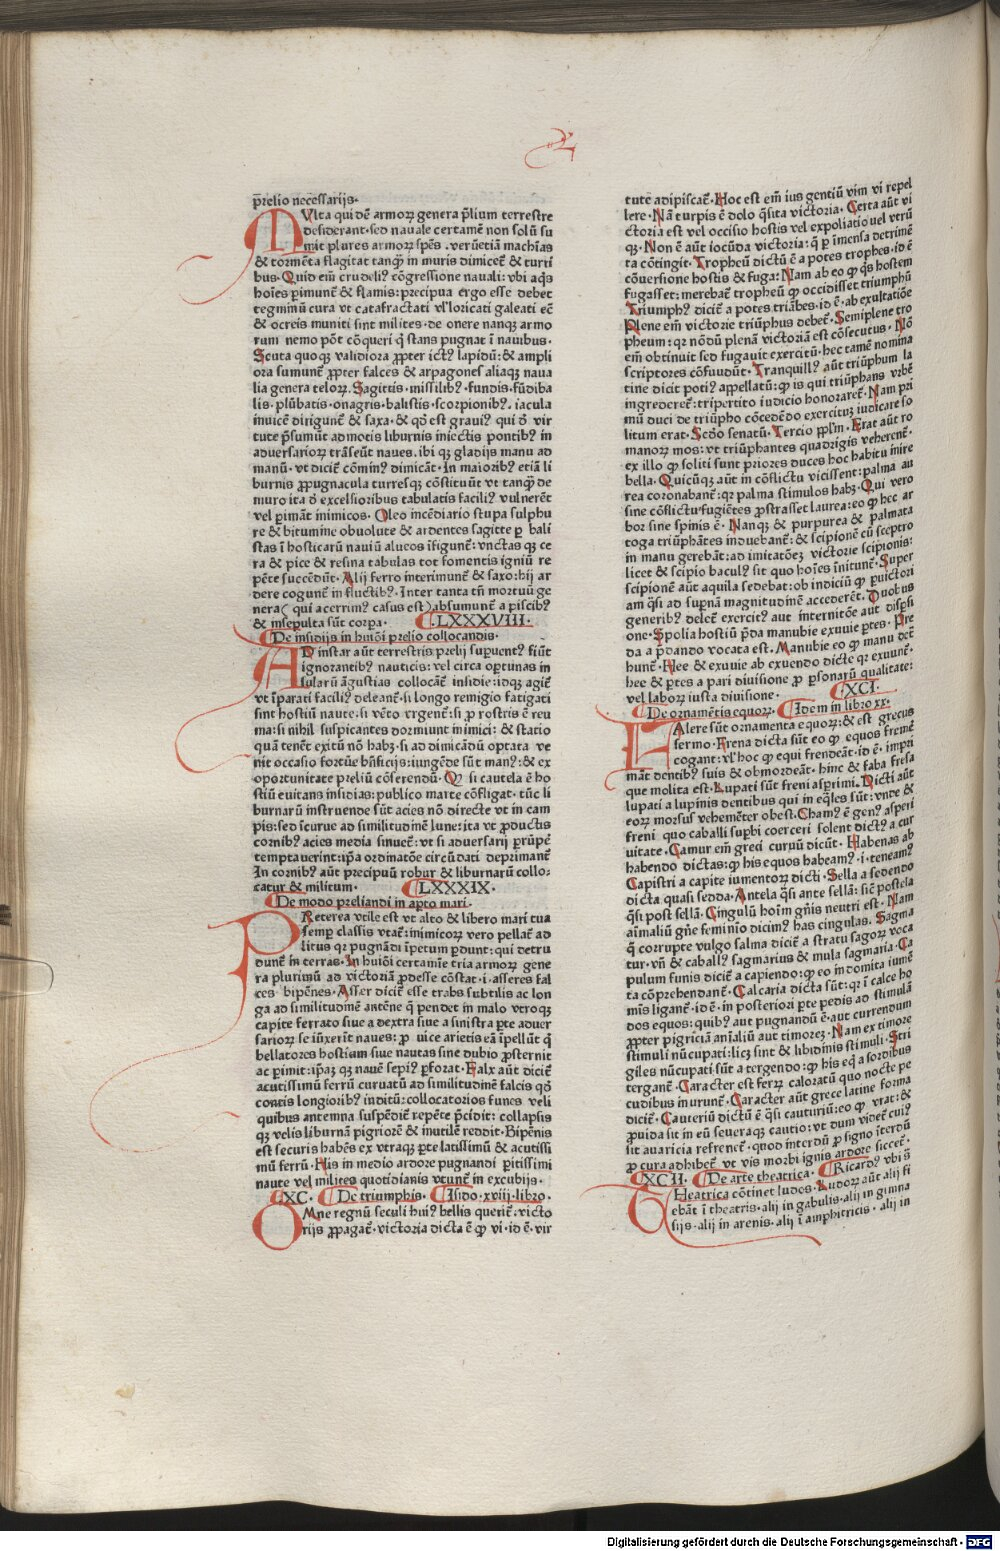 p̄relio necessarijs·
MUlta qui dē armoꝝ genera p̄lium terrestre
desiderant·sed nauale certamē non solū su
mit plures armoꝝ spēs·veꝝetiā machīas
& tormēta flagitat tanqꝫ in muris dimicet̄ & turri
bus·Quid em̄ crudeliꝰ cōgressione nauali:vbi aq̄s
hoīes ꝑimunt̄ & flamis:precipua ergo esse debet
tegminū cura vt catafractati vl' loricati galeati ec̄
& ocreis muniti sint milites·de onere nanqꝫ armo
rum nemo pōt cōqueri q̄ stans pugnat ī nauibus·
Scuta quoqꝫ validiora ꝓpter ictꝰ lapidū:& ampli
ora sumunt̄ ꝓpter falces & arpagones aliaqꝫ naua
lia genera teloꝝ·Sagittis·missilibꝰ·fundis·fūdiba
lis·plūbatis·onagris·balistis·scorpionibꝰ·iacula
inuicē dirigunt̄ & saxa·& qō est grauiꝰ qui d̄ vir
tute p̄sumūt admotis liburnis iniectis pontibꝰ in
aduersarioꝝ trāseūt naues·ibi qꝫ gladijs manu ad
manū·vt dicit̄ cōminꝰ dimicāt·In maioribꝰ etiā li
burnis ꝓpugnacula turresqꝫ cōstituūt vt tanqꝫ de
muro ita d̄ excelsioribus tabulatis faciliꝰ vulnerēt
vel ꝑimāt inimicos·Oleo incēdiario stupa sulphu
re & bitumine obuolute & ardentes sagitte ꝑ bali
stas ī hosticarū nauiū alueos īfigunt̄:vnctas qꝫ ce
ra & pice & resina tabulas tot fomentis igniū re
pēte succēdūt·Alij ferro interimunt̄ & saxo:hij ar
dere cogunt̄ in fluctibꝰ·Inter tanta tn̄ mortuū ge
nera(qui acerrimꝰ casus est)absumunt̄ a piscibꝰ
& insepulta sūt corpa· ·LXXXVIII·
De insidijs in huiōi prelio collocandis·
AD instar aūt terrestris prelij supuent̄ fiūt
ignorantibꝰ nauticis:vel circa optunas in
sularū āgustias collocāt̄ insidie:idqꝫ agit̄
vt īparati faciliꝰ deleant̄·si longo remigio fatigati
sint hostiū naute·si vēto vrgent̄:si ꝓ rostris ē reu
ma:si nihil suspicantes dormiunt inimici:& statio
quā tenēt exitū nō habꝫ·si ad dimicādū optata ve
nit occasio fortūe bn̄ficijs:iungēde sūt manꝰ:& ex
oportunitate preliū cōserendū·Qꝫ si cautela ē ho
stiū euitans insidias:publico marte cōfligat·tūc li
burnarū instruende sūt acies nō directe vt in cam
pis:sed īcurue ad similitudinē lune:ita vt ꝓductis
cornibꝰ acies media sinuet̄:vt si aduersarij ꝑrūpē
temptauerint:ip̄a ordinatōe circūdati deprimant̄
In cornibꝰ aūt precipuū robur & liburnarū collo-
catur & militum· LXXXIX·
De modo preliandi in aꝑto mari·
PReterea vtile est vt alto & libero mari tua
semꝑ classis vtat̄:inimicoꝝ vero pellat̄ ad
litus qꝛ pugnādi īpetum ꝑdunt:qui detru
dunt̄ in terras·In huiōi certamīe tria armoꝝ gene
ra plurimū ad victoriā ꝓdesse cōstat·i·asseres fal
ces bipēnes·Asser dicit̄ esse trabs subtilis ac lon
ga ad similitudinē antēne q̄ pendet in malo vtroqꝫ
capite ferrato siue a dextra siue a sinistra ꝑte aduer
sarioꝝ se iūxerīt naues:ꝓ vice arietis eā īpellūt q̄
bellatores hostium siue nautas sine dubio ꝓsternit
ac ꝑimit:ip̄aꝫ qꝫ nauē sepiꝰ ꝑforat·Falx aūt dicit̄
acutissimū ferrū curuatū ad similitudinē falcis qō
contis longioribꝰ inditū:collocatorios funes veli
quibus antemna suspēdit̄ repēte p̄cidit:collapsis
qꝫ velis liburnā pigriorē & inutilē reddit·Bipēnis
est securis habēs ex vtraqꝫ ꝑte latissimū & acutissi
mū ferrū·His in medio ardore pugnandi ꝑitissimi
naute vel milites quotidianis vtunt̄ in excubijs·
XC· De triumphis· Isido·xviij·libro·
OMne regnū seculi huiꝰ bellis querit̄:victo
rijs ꝓpagat̄·victoria dicta ē qꝫ vi·id ē·vir
tute adipiscat̄·Hoc est em̄ ius gentiū vim vi repel
lere·Nā turpis ē dolo q̄sita victoria·Certa aūt vi
ctoria est vel occisio hostis vel expoliatio vel vtrū
qꝫ·Non ē aūt iocūda victoria:q̄ ꝑ īmensa detrimē
ta cōtingit·Tropheū dictū ē a potes trophes·id ē
cōuersione hostis & fuga:Nam ab eo qꝫ q̄s hostem
fugasset:merebat̄ tropheū qꝫ occidisset triumphū
Triumphꝰ dicit̄ a potes triābes·id ē·ab exultatiōe
Plene em̄ victorie triūphus debet̄·Semiplene tro
pheum:qꝛ nōdū plenā victoriā est cōsecutus·Nō
em̄ obtinuit sed fugauit exercitū·hec tamē nomina
scriptores cōfuudūt·Tranquillꝰ aūt triūphum la
tine dicit potiꝰ appellatū:qꝫ is qui triūphans vrbē
ingrederet̄:tripertito iudicio honoraret̄·Nam pri
mū duci de triūpho cōcedēdo exercituꝫ iudicare so
litum erat·Scd̄o senatū·Tercio ppl'm·Erat aūt ro
manoꝝ mos:vt triūphantes quadrigis veherent̄·
ex illo qꝫ soliti sunt priores duces hoc habitu inire
bella·Quicūqꝫ aūt in cōflictu vicissent:palma au
rea coronabant̄:qꝛ palma stimulos habꝫ·Qui vero
sine cōflictu fugiētes ꝓstrasset laurea:eo qꝫ hec ar
bor sine spinis ē·Nanqꝫ & purpurea & palmata
toga triūphātes induebant̄:& scipionē cū sceptro
in manu gerebāt:ad imitatōeꝫ victorie scipionis:
licet & scipio baculꝰ sit quo hoīes īnitunt̄·Super
scipionē aūt aquila sedebat:ob indiciū qꝫ ꝑ victori
am q̄si ad supnā magnitudinē accederēt·Duobus
generibꝰ delet̄ exercitꝰ aut internitōe aut disꝑsi
one·Spolia hostiū p̄da manubie exuuie ꝑtes·Pre
da a p̄dando vocata est·Manubie eo qꝫ manu det̄
hunt̄·Hee & exuuie ab exuendo dicte qꝛ exuunt̄·
hee & ꝑtes a pari diuisione ꝓ ꝑsonarū qualitate:
vel laboꝝ iusta diuisione· XCI·
De ornamētis equoꝝ· Idem in libro xx·
FAlere sūt ornamenta equoꝝ:& est grecus
sermo·Frena dicta sūt eo qꝫ equos fremē
cogant:vl' hoc qꝫ equi frendeāt·id ē·impri
māt dentibꝰ suis & obmordeāt·hinc & faba fresa
que molita est·Lupati sūt freni asꝑrimi·Dicti aūt
lupati a lupinis dentibus qui in eq̄les sūt:vnde &
eoꝝ morsus vehemēter obest·Chamꝰ ē genꝰ asperi
freni quo caballi supbi coerceri solent dictꝰ a cur
uitate·Camur em̄ greci curuū dicūt·Habenas ab
habendo dictas:qꝫ his equos habeamꝰ·i·teneamꝰ
Capistri a capite iumentoꝝ dicti·Sella a sedendo
dicta quasi sedda·Antela q̄si ante sellā:sic̄ postela
q̄si post sellā·Cingulū hoīm gn̄is neutri est·Nam
aīmaliū gn̄e feminio dicimꝰ has cingulas·Sagma
q̄ corrupte vulgo salma dicit̄ a stratu sagoꝝ voca
tur·vn̄ & caballꝰ sagmarius & mula sagmaria·Ca
pulum funis dicit̄ a capiendo:qꝫ eo indomita iumē
ta cōprehendant̄·Calcaria dicta sūt:qꝛ ī calce ho
mīs ligant̄·id ē·in posteriori ꝑte pedis ad stimulā
dos equos:quibꝰ aut pugnandū ē·aut currendum
ꝓpter pigriciā anīaliū aut timoreꝫ·Nam ex timore
stimuli nūcupati:licꝫ sint & libidinis stimuli·Stri
giles nūcupati sūt a tergendo:qꝫ his eq̄ a sordibus
tergant̄·Caracter est ferꝝ caloratū quo nocte pe
cudibus inurunt̄·Caracter aūt grece latine forma
dicit̄·Cauteriū dictū ē q̄si cauturiū:eo qꝫ vrat:&
ꝓuida sit in eū seueraqꝫ cautio:vt dum videt̄ cuiꝰ
sit auaricia refrenet̄·quod interdū ꝓ signo īterdū
ꝓ cura adhibet̄ vt vis morbi ignis ardore siccet̄·
XCII· De arte theatrica· Ricardꝰ vbi s̄
THeatrica cōtinet ludos·Ludoꝝ aūt alij fi
ebāt ī theatris·alij in gabulis·alij in gimna
sijs·alij in arenis·alij ī amphitricis·alij in
Digitalisierung gefördert durch die Deutsche Forschungsgemeinschaft · DFG